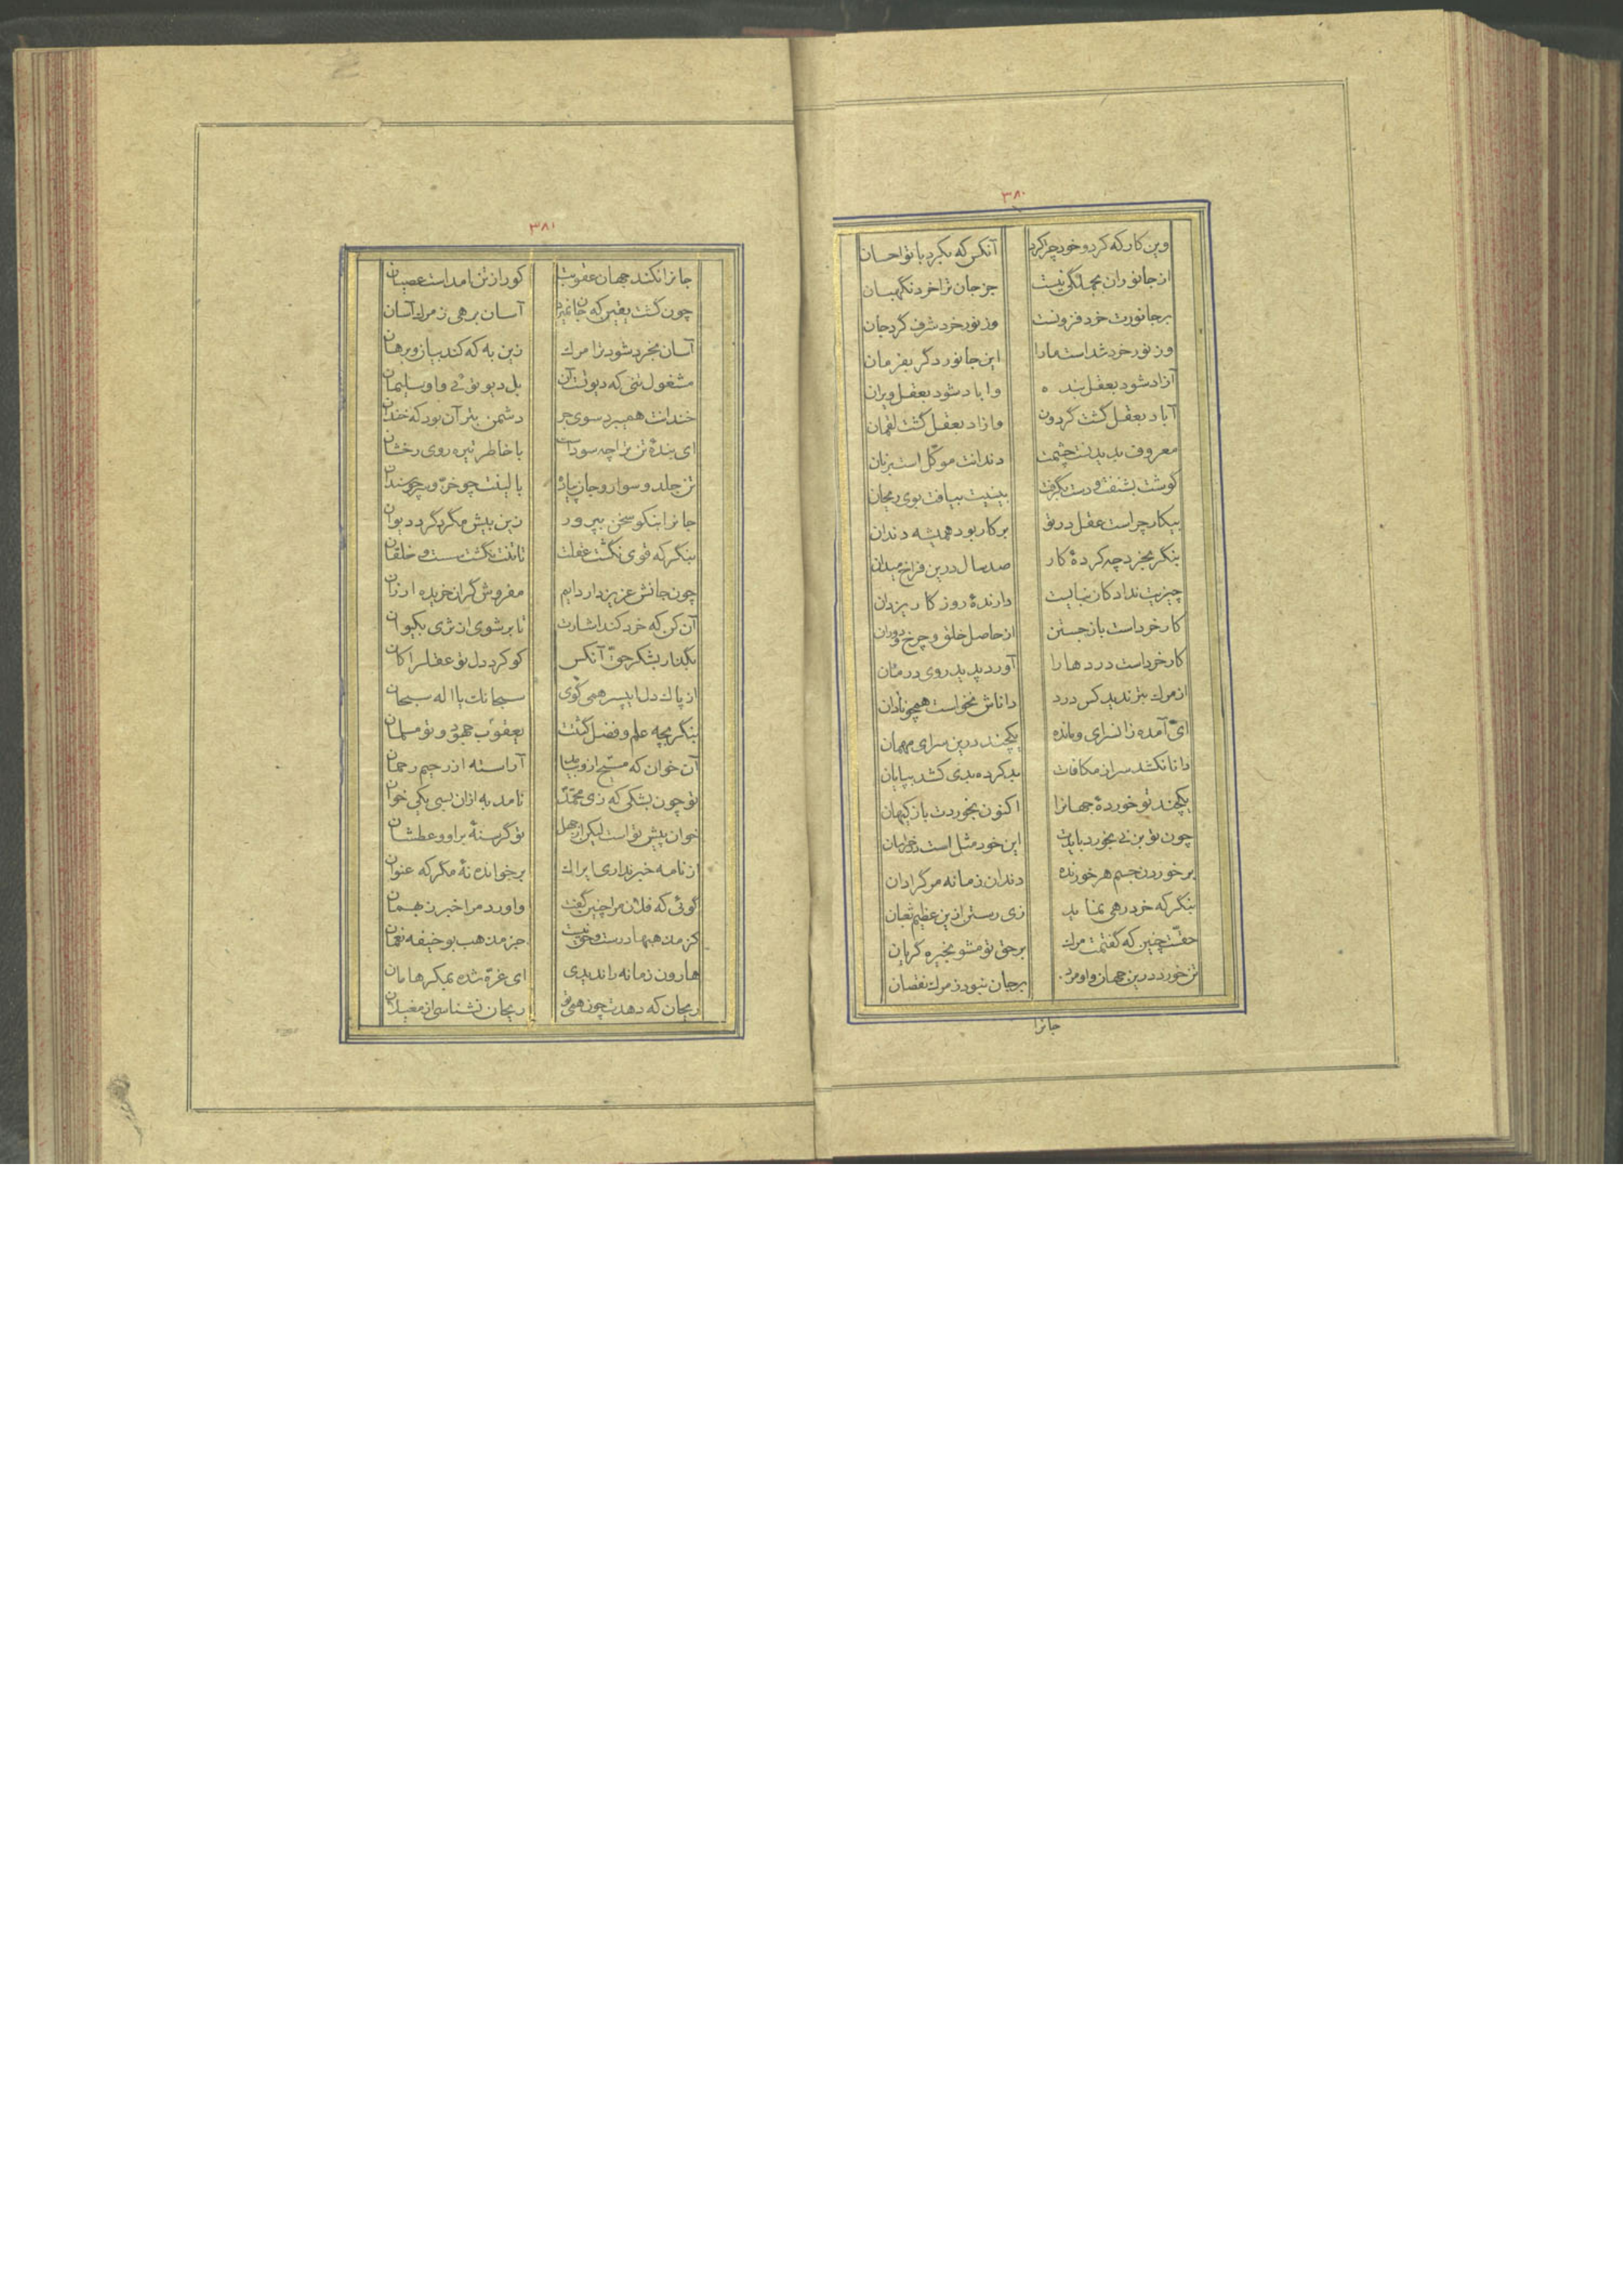 ۳۸۰
وین کار که کرد و خود چرا کرد آنکس که بکرد با تو احسان
از جانوران بجملگی نیست جز جان ترا خرد نگهبان
بر جانورت خرد فزونست وز نور خرد شرف گرد جان
وز نور خرد شداست ما را این جانور دگر بفرمان
آزاد شود بعقل بنده واباد شود بعقل ویران
آباد بعقل گشت گردون وازاد بعقل گشت لقمان
معروف بدیدنت چشمت دندانت موکل است بر نان
گوشت بشنفت و دست بگرفت بینیت بیافت بوی ریحان
بیکار چراست عقل در تو بر کار بود همیشه دندان
بنگر بخرد چه کردهٔ کار صد سال درین فراخ میدان
چیزیت نداد کان نبایست دارندهٔ روز کار یزدان
کار خرداست باز جستن از حاصل خلق و چرخ و دوران
کار خرداست دردها را آورد پدید روی درمان
از مرک بتر ندید کس درد داناش نخواست همچو نادان
ای آمده زانسرای و مانده یکچند درین سرای مهمان
دانا نکشد سر از مکافات بد کرده بدی کشد بپایان
یکچند تو خوردهٔ جهانرا اکنون بخوردت باز کیهان
چون تو بزنی بخورد بایدت این خود مثل است در خراسان
بر خوردن جسم هر خورنده دندان زمانه مر گرا دان
بنگر که خرد رهی نماید زی رستن ازین عظیم ثعبان
حقست چنین که گفتمت مرک بر حق تو مشو بخیره گریان
تن خورد درین جهان و او مرد بر جان نبود ز مرک نقصان
جانرا
۳۸۱
جانرا نکند جهان عقوبت کورا ز تن نامداست عصیان
چون گشت یقین که جان نمیرد آسان برهی ز مرک آسان
آسان بخرد شود ترا مرک زین به که کند بیان و برهان
مشغول تنی که دیو تست آن بل دیو توئی و او سلیمان
خندانت همی برد سوی جر دشمن بتر آن بود که خندان
ای بندهٔ تن ترا چه سوداست با خاطر تیره روی رخشان
تن جلد و سوار و جان پیاده با لیفت چو خرّ و بر چو سندان
جانرا بنکو سخن بپرور زین بیش مگرد گرد دیوان
بنگر که قوی نگشت عقلت تا تنت نگشت سست و خلقان
چون جانش عزیز دار دایم مفروش گران خریده ارزان
آن کن که خرد کند اشارت تا بر شوی از ثری بکیوان
بگذار بشکر حق آنکس کو کرد دل تو عقل را کان
از پاک دل ایپسر همی گوی سبحانک یا اله سبحان
بنگر بچه علم و فضل گشت یعقوب جهود و تو مسلمان
آن خوان که مسیح ازو بدید آراسته از رحیم رحمان
تو چون بشکی که زی محمّد نامد به ازان بسی یکی خوان
خوان پیش تو است لیکن از جهل تو گرسنهٔ براو و عطشان
از نامه خبر نداری ایراک برخوانده نهٔ مگر که عنوان
گوئی که فلان مرا چنین گفت واورد مرا خبر ز بهمان
کز مذهبها درست و حق نیست جز مذهب بوحنیفه نعمان
هارون زمانه را ندیدی ای غرّه شده بمکر هامان
ریحان که دهدت چون همی تو ریحان نشناسی از مغیلان